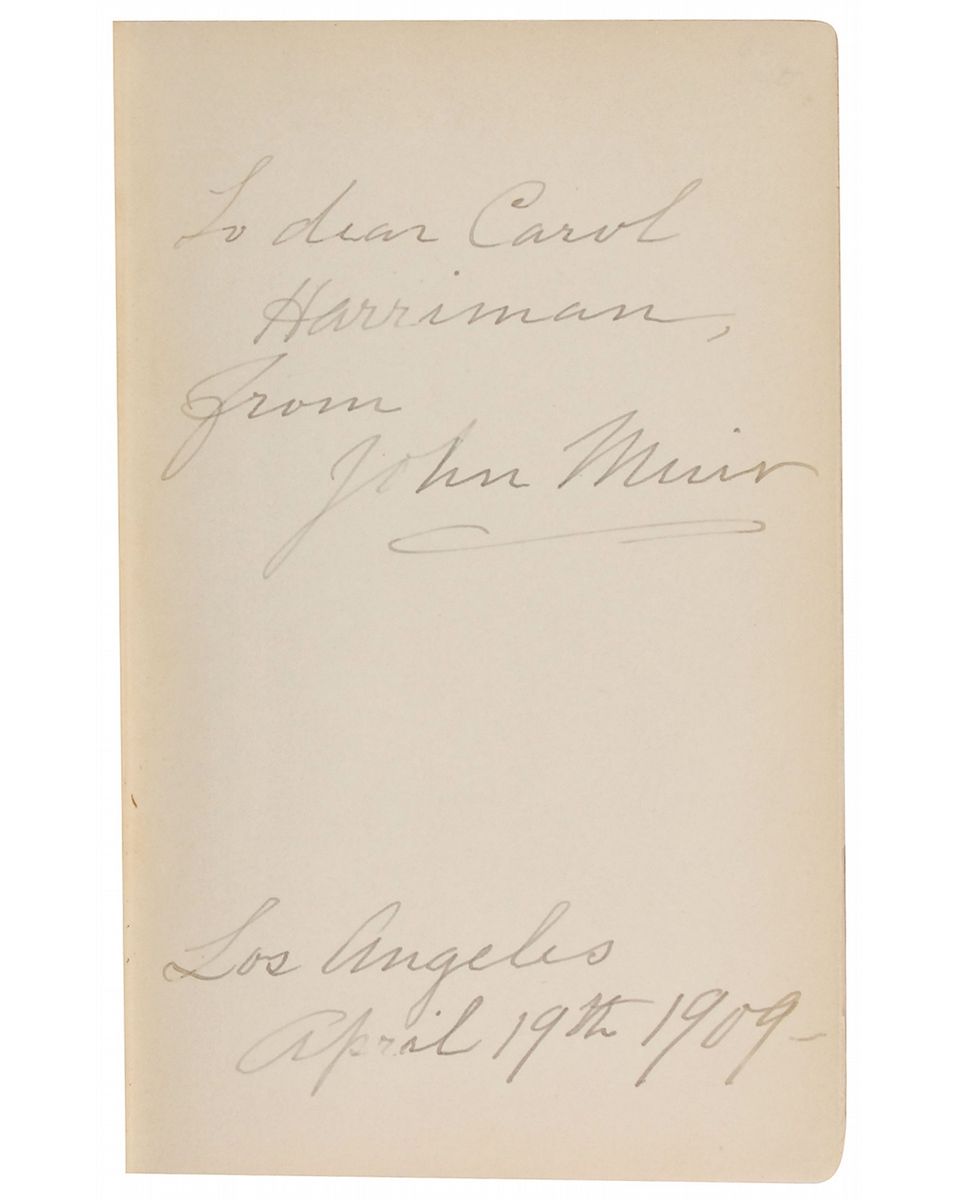 To dear Carol
Harriman,
from
John Muir
Los Angeles
April 19th 1909-